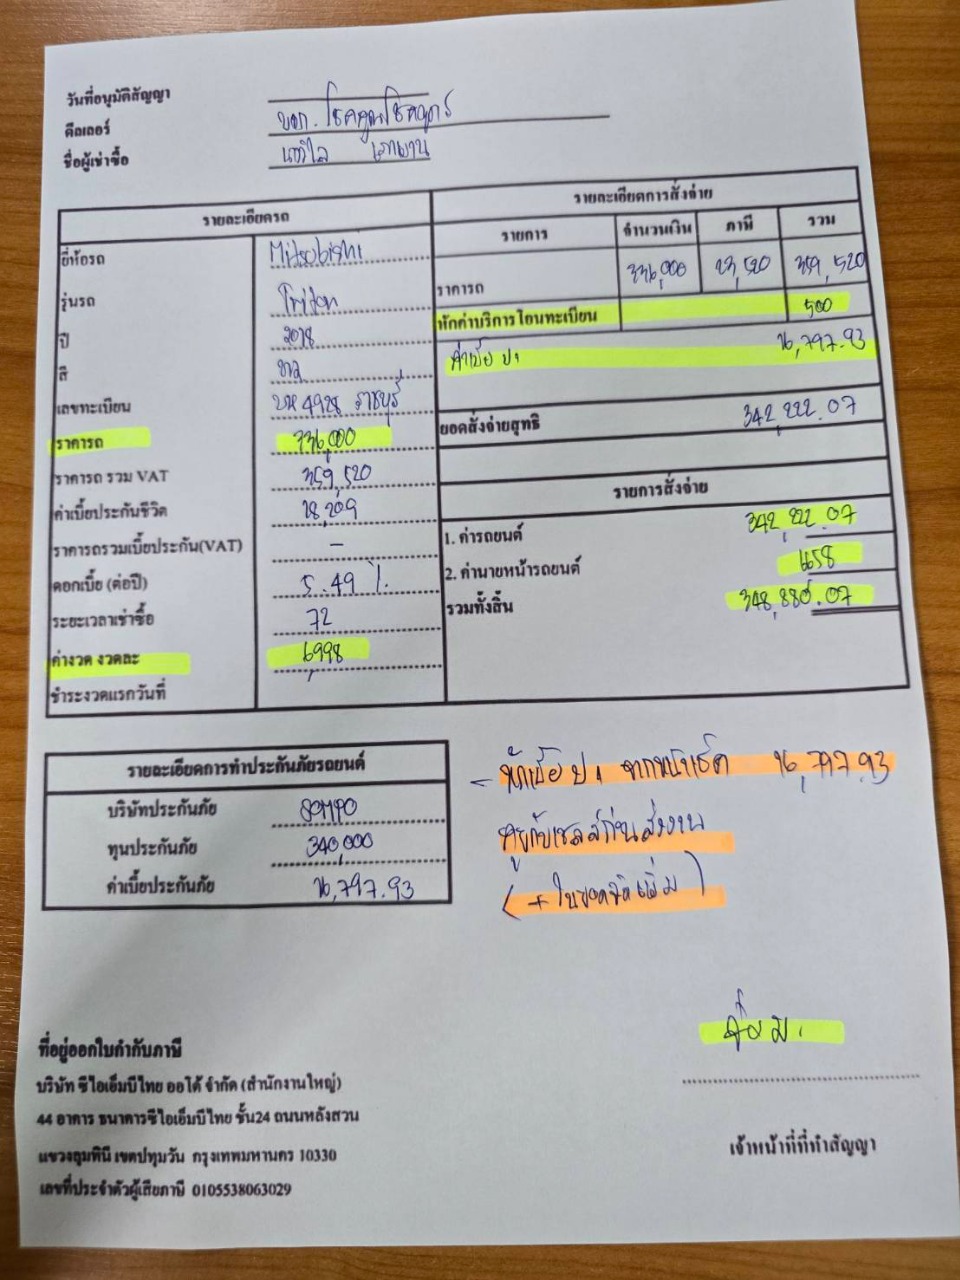 วันที่อนุมัติสัญญา
ดีลเลอร์ บจก. โชคคูณโชค
ชื่อผู้เช่าซื้อ
รายละเอียดรถ
ยี่ห้อรถ Mitsubishi
รุ่นรถ Triton
ปี 2018
สี ขาว
เลขทะเบียน 4928 ราชบุรี
ราคารถ 336,000
ราคารถ รวม VAT 359,520
ค่าเบี้ยประกันชีวิต 18,209
ราคารถรวมเบี้ยประกัน(VAT) -
ดอกเบี้ย (ต่อปี) 5.49 %
ระยะเวลาเช่าซื้อ 72
ค่างวด งวดละ 6,998
ชำระงวดแรกวันที่
รายละเอียดการสั่งจ่าย
รายการ จำนวนเงิน ภาษี รวม
ราคารถ 336,000 23,520 359,520
หักค่าบริการโอนทะเบียน 500
ค่าเบี้ย ป1 16,797.93
ยอดสั่งจ่ายสุทธิ 342,222.07
รายการสั่งจ่าย
1. ค่ารถยนต์ 342,222.07
2. ค่านายหน้ารถยนต์ 6658
รวมทั้งสิ้น 348,880.07
รายละเอียดการทำประกันภัยรถยนต์
บริษัทประกันภัย SOMPO
ทุนประกันภัย 340,000
ค่าเบี้ยประกันภัย 16,797.93
- หักเบี้ย ป1 จากหน้าเช็ค 16,797.93
คุยกับเซลส์ก่อนส่งงาน
ที่อยู่ออกใบกำกับภาษี
บริษัท ซีไอเอ็มบีไทย ออโต้ จำกัด (สำนักงานใหญ่)
44 อาคาร ธนาคารซีไอเอ็มบีไทย ชั้น24 ถนนหลังสวน
แขวงลุมพินี เขตปทุมวัน กรุงเทพมหานคร 10330
เลขที่ประจำตัวผู้เสียภาษี 0105538063029
เจ้าหน้าที่ที่ทำสัญญา